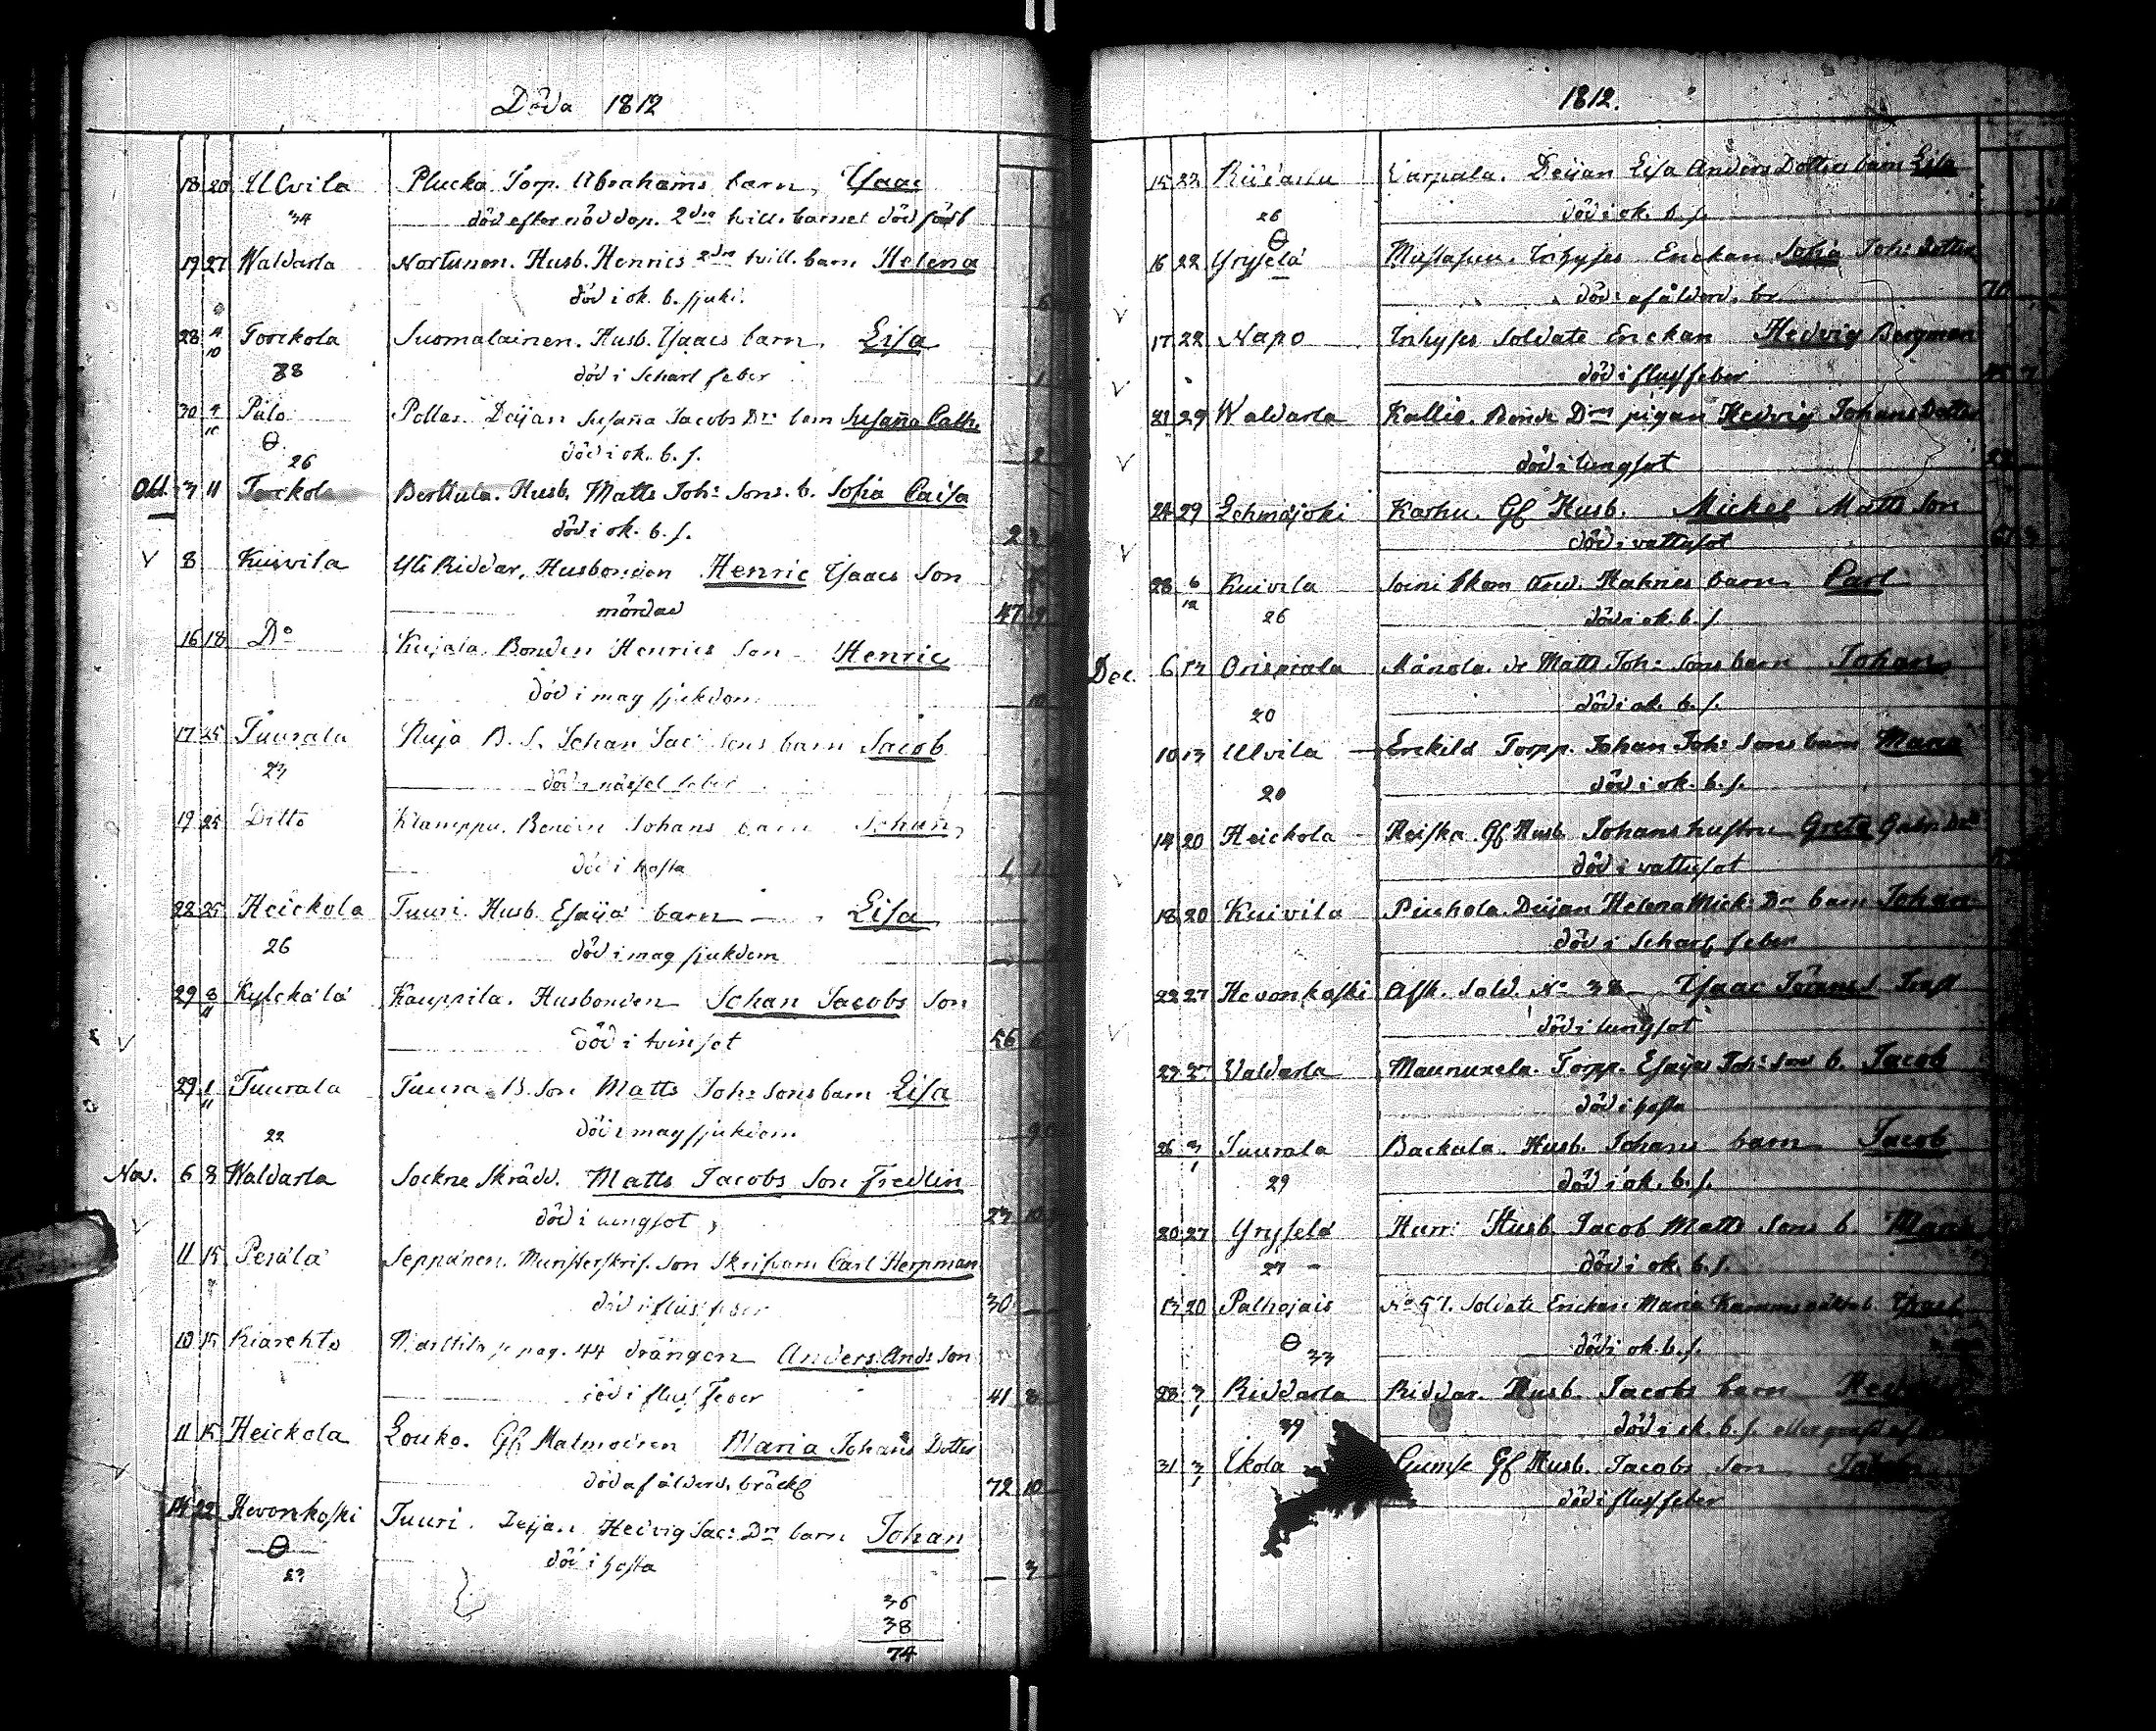 Döda 1812
18 20 Ulvila Plucka Torp. Abrahams barn, Ysaac
34 död efter nöd dop. 2dra tvill. barnet död född
19 27 Waldarla Nortunen. Husb. Henrics 2dra tvill. barn Helena
död i ok. b. sjukd. 6
28 4/10 Torckola Suomalainen. Husb. Ysaacs barn, Lisa
38 död i Scharl feber 1
30 4/10 Palo Pollar. Deijan Susaña Jacobs Dr barn Susaña Cath.
26 död i ok. b. s. 2
Oct. 3 11 Torckola Berttula. Husb. Matts Joh: Sons. b. Sofia Caisa
död i ok. b. s. 2
V 8 Kuivila Yli Riddar. Husbonden Henric Ysaacs Son
mördad 47
16 18 Do Kujala. Bonden Henrics Son Henric
död i mag sjukdom
17 25 Tuurala Ruja B. S. Johan Jac: Sons barn Jacob
23 död i nässel feber
19 25 Ditto Klamppu. Bonden Johans barn Johan,
död i hosta 1
22 25 Heickola Tuuri. Husb. Esaijä barn Lisa
26 död i mag sjukdom
29 8/11 Kylckälä Kauppila. Husbonden Johan Jacobs Son
V död i tvinsot 56 6
29 1/11 Tuurala Tuura B. Son Matts Joh: Sons barn Lisa
22 död i mag sjukdom
Nov. 6 8 Waldarla Sockne Skrädd. Matts Jacobs Son Fredlin
död i lungsot, 23 10
11 15 Peräla Seppänen. Munsterskrif. Son Skrifvarn Carl Herpman
död i fluss feber 30
10 15 Kiarehto pag. 44 drängen Anders Ands Son
död i fluss Feber 41 8
11 15 Heickola Louko. Gl Malmodren Maria Johans Dotter
död af ålderd. bräckl 72 10
14 22 Hevonkoski Tuuri. Deijan Hedvig Jac: Dr barn Johan
23 död i hosta 3
36
38
74
1812.
15 22 Deijan Lisa Anders Dotters barn Lisa
26 död i ok. b. s.
16 22 Yrjselä Inhyses Enckan Sofia Joh: Dotter
död af ålderd. br.
17 22 Napo Inhyses Soldate Enckan Hedvig Bergman
V död i fluss feber
21 29 Waldarla Kallio. Bonde Drs pigan Hedvig Johans Dotter
V död i lungsot
24 29 Lehmäjoki Karhu. Gl Husb. Mickel Matts Son
V död i vattusot
28 6/12 Kuivila Soini And. Hahnes barn Carl
26 död i ok. b. s.
Dec. 6 13 Orispala Månola. Matts Joh: Sons barn Johan
20 död i ok. b. s.
10 13 Ulvila Enckild Torpp. Johan Joh: Sons barn Maria
20 död i ok. b. s.
14 20 Heickola Reiska. Gl Husb. Johans hustru Greta
död i vattusot
18 20 Kuivila Deijan Helena Mick: Dr barn Johan
död i Scharl feber
22 27 Hevonkoski Afsk. Sold. No 38 Ysaac
död i lungsot
27 Valdarla Maununxela. Torpp. Esaijas Joh: Sons b. Jacob
död i hosta
26 3/1 Tuurala Backala. Husb. Johans barn Jacob
29 död i ok. b. s.
20 27 Yrjselä Harri Husb. Jacob Matts Sons b.
27 död i ok. b. s.
13 20 Palhojais No 57. Soldate Enckan Maria
33 död i ok. b. s.
28 3/1 Riddarla Riddar. Husb. Jacobs barn
39 död i ok. b. s. eller
31 3/1 Ikola Gl Husb. Jacobs Son
död i fluss feber